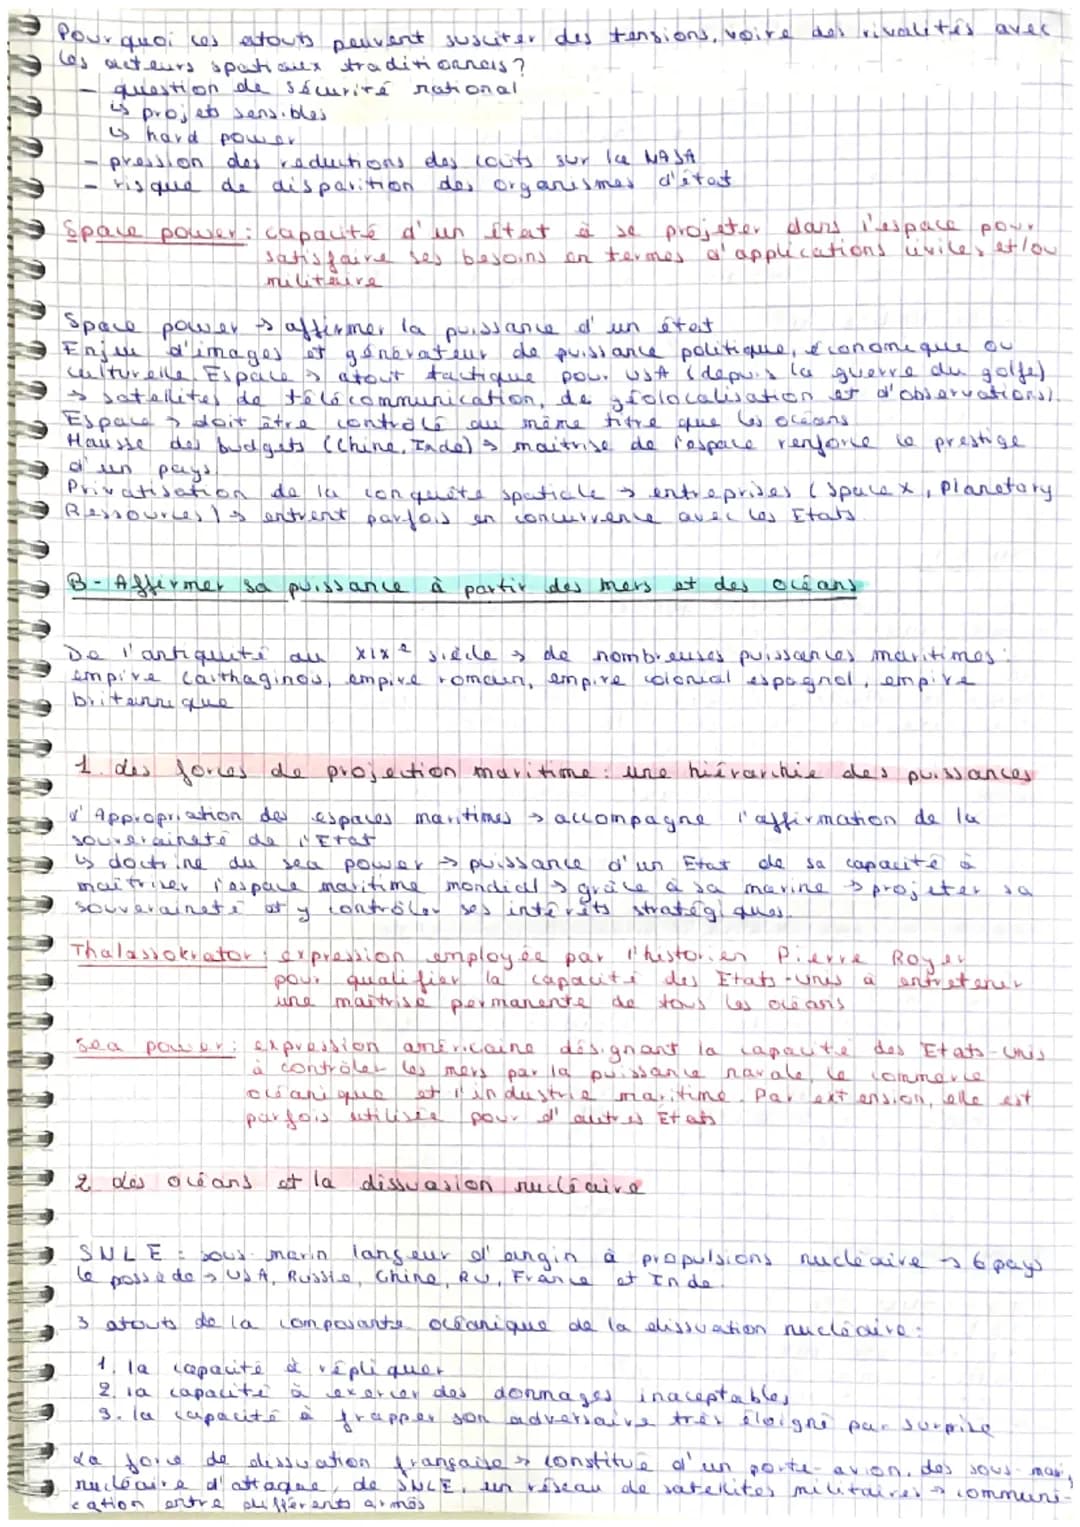 Pourquoi ces atouts peuvent susciter des tensions, voire des rivalités avec
les acteurs spatiaux traditionnels ?
- question de sécurité national
↳ projets sensibles
↳ hard power
- pression des reductions des coûts sur la NASA
- risque de disparition des organismes d'état
Space power : capacité d'un état à se projeter dans l'espace pour
satisfaire ses besoins en termes d'applications civiles et/ou
militaire
Space power → affirmer la puissance d'un état
Enjeu d'images et générateur de puissance politique, économique ou
culturelle. Espace → atout tactique pour USA (depuis la guerre du golfe)
→ satellites de télécommunication, de géolocalisation et d'observations).
Espace → doit être contrôlé au même titre que les océans
Hausse des budgets (Chine, Inde) → maitrise de l'espace renforce le prestige
d'un pays
Privatisation de la conquête spatiale → entreprises (Space X, Planetary
Ressources) → entrent parfois en concurrence avec les Etats
B - Affirmer sa puissance à partir des mers et des océans
De l'antiquité au XIXe siècle → de nombreuses puissances maritimes :
empire carthaginois, empire romain, empire colonial espagnol, empire
britannique
1. des forces de projection maritime : une hiérarchie des puissances
d'Appropriation des espaces maritimes → accompagne l'affirmation de la
souveraineté de l'Etat
↳ doctrine du sea power → puissance d'un Etat de sa capacité à
maitriser l'espace maritime mondial → grâce à sa marine → projeter sa
souveraineté et y contrôler ses intérêts stratégiques.
Thalassokrator : expression employée par l'historien Pierre Royer
pour qualifier la capacité des Etats-Unis à entretenir
une maîtrise permanente de tous les océans
Sea power : expression américaine désignant la capacité des Etats-Unis
à contrôler les mers par la puissance navale, le commerce
océanique et l'industrie maritime. Par extension, elle est
parfois utilisée pour d'autres Etats
2 des océans et la dissuasion nucléaire
SNLE : sous-marin lanceur d'engin à propulsions nucléaire → 6 pays
le possède → USA, Russie, Chine, RU, France et Inde
3 atouts de la composante océanique de la dissuation nucléaire :
1. la capacité à répliquer
2. la capacité à exercer des dommages inaceptables
3. la capacité à frapper son adversaire très éloigné par surprise
La force de dissuation française → constitué d'un porte-avion, des sous-marins
nucléaire d'attaque, de SNLE, un réseau de satellites militaires → communi-
cation entre différents armés